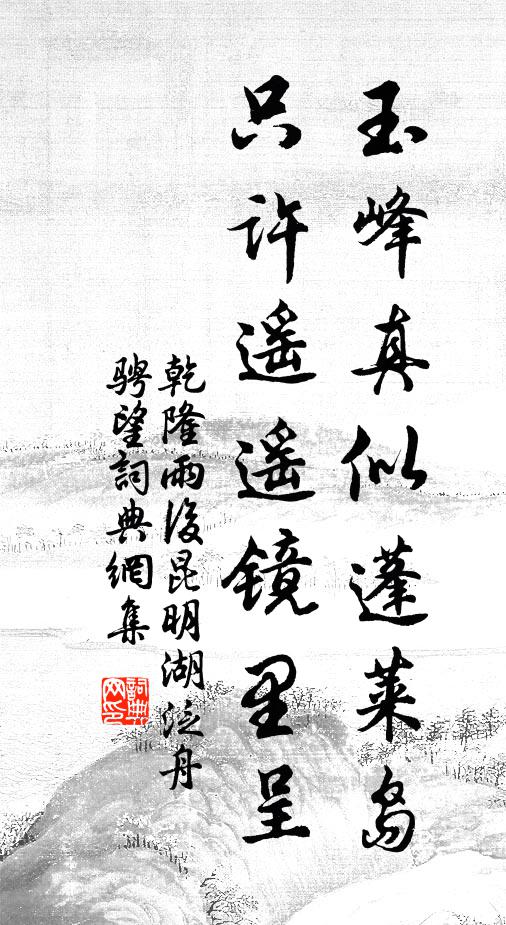 玉峰真似蓬莱岛
只许遥遥镜里呈
乾隆雨後昆明湖泛舟
骋望詞典網集
詞典网印